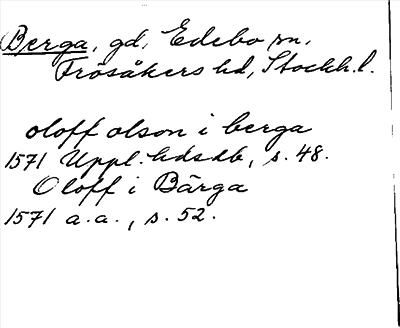 Berga, gd, Edebo sn,
Frösåkers hd, Stockh. l.
oloff olson i berga
1571 Uppl. hdsdb, s. 48.
Oloff i Bärga
1571 a. a., s. 52.